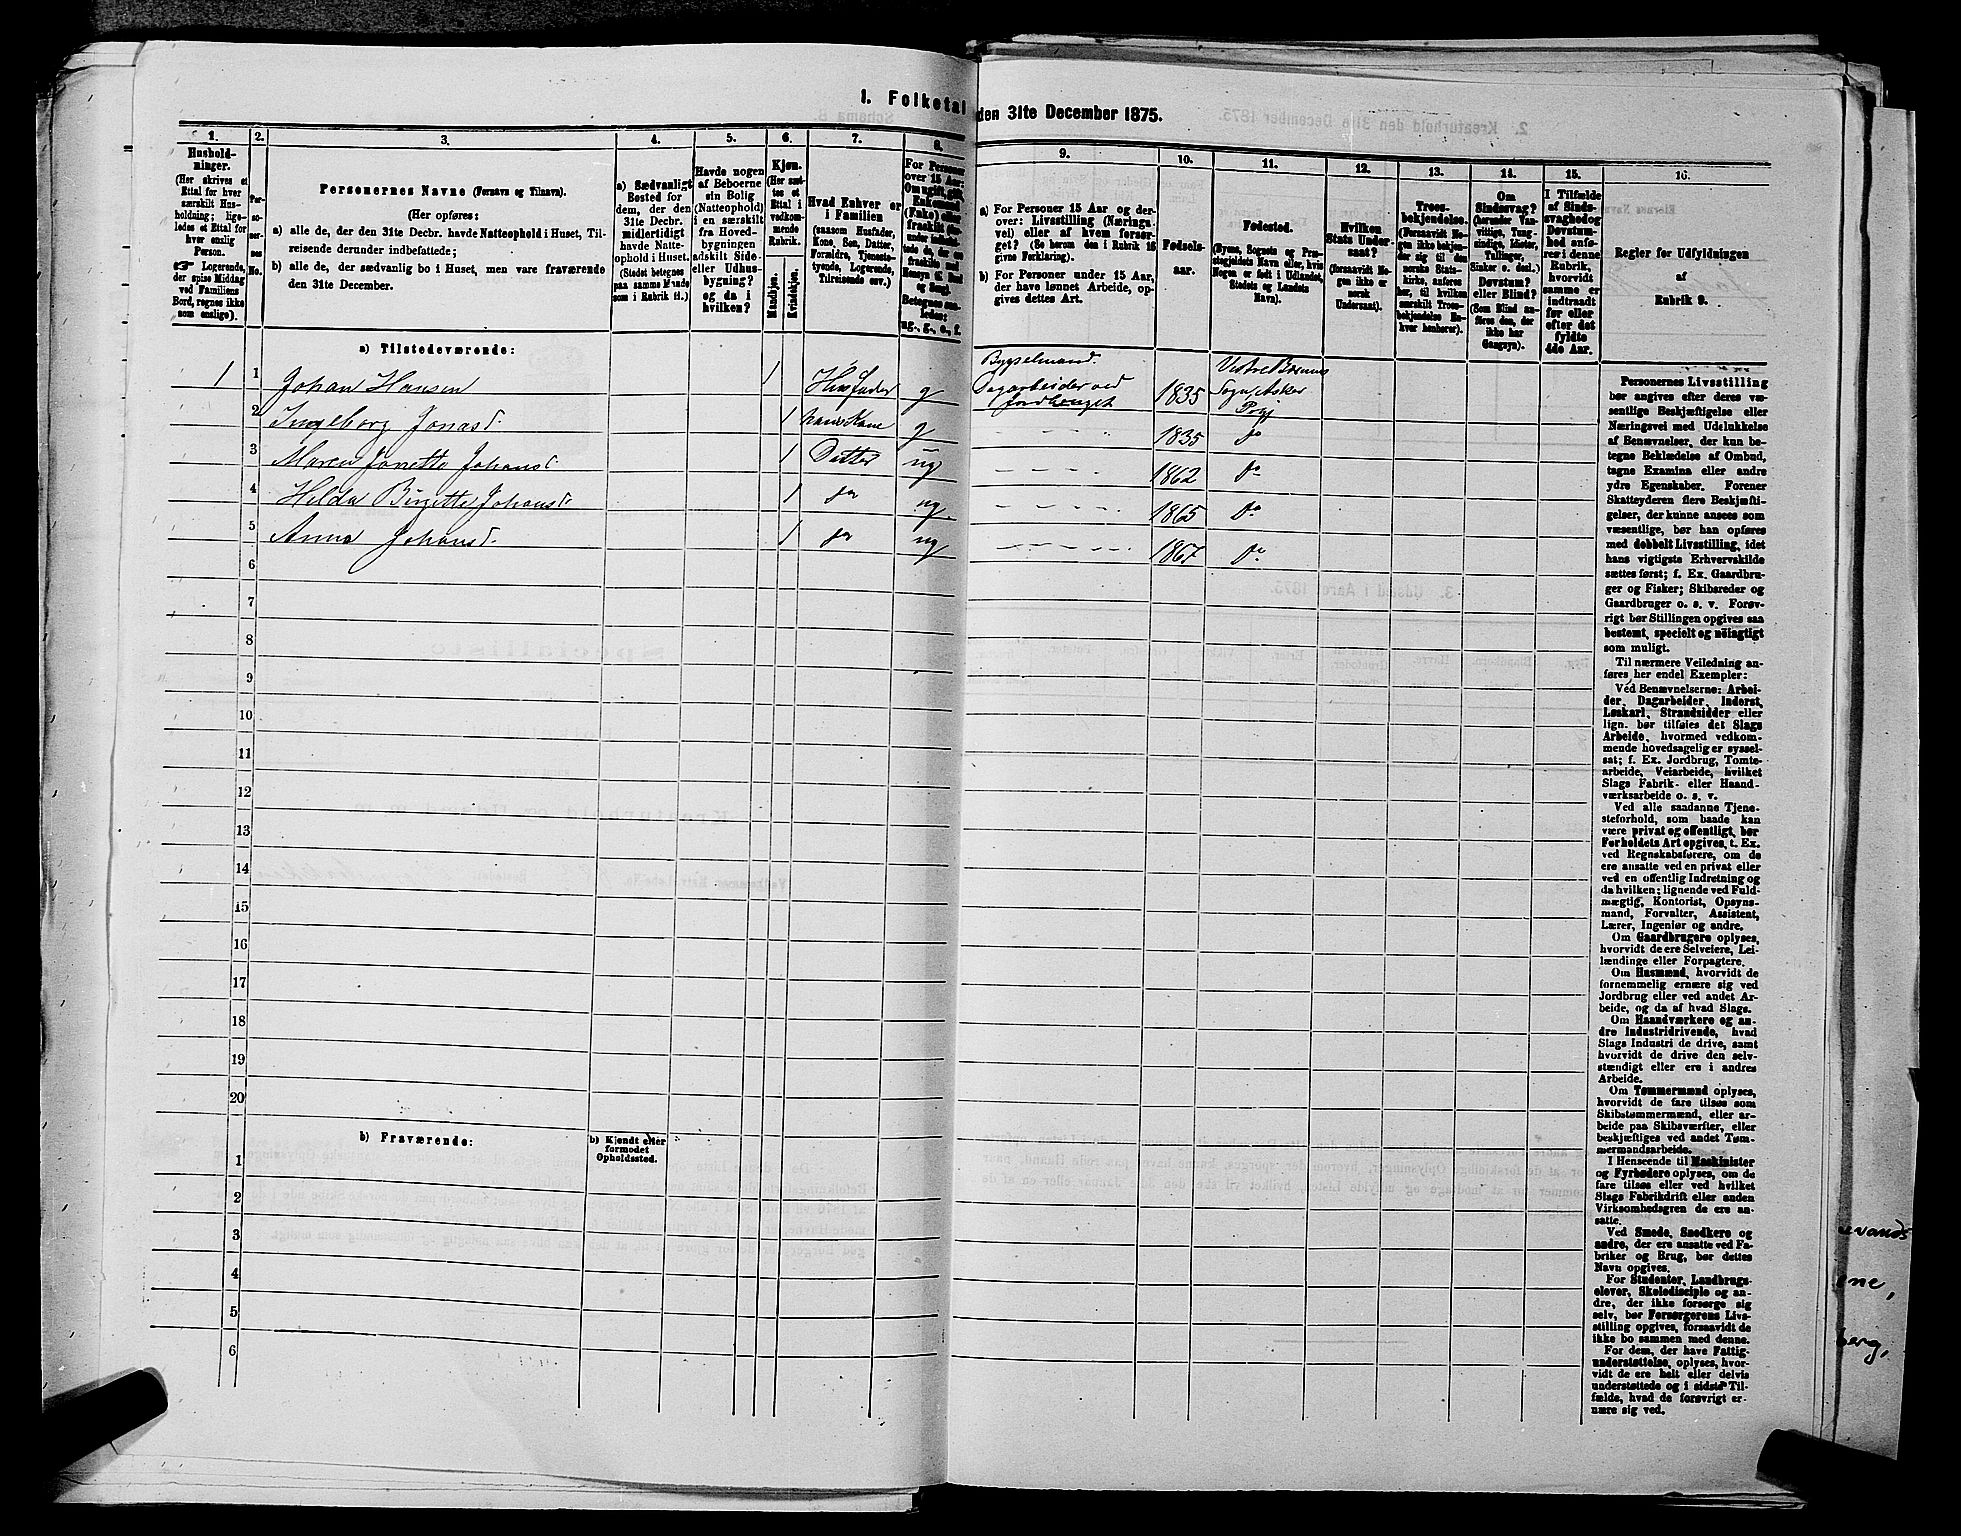 I. Folketal den 31te December 1875.
1. 2. 3. 4. 5. 6. 7. 8. 9. 10. 11. 12. 13. 14. 15. 16.
Hushold-
ninger.
(Her skrives et
Ettal for hver
særskilt Hus-
holdning; lige-
ledes et Ettal for
hver enslig
Person.
☞ Logerende,
der spise Middag
ved Familiens
Bord, regnes ikke
som enslige).
Per-
so-
ner-
nes
No.
Personernes Navne (Fornavn og Tilnavn).
(Her opføres:
a) alle de, der den 31te Decbr. havde Natteophold i Huset, Til-
reisende derunder indbefattede;
b) alle de, der sædvanlig bo i Huset, men vare fraværende
den 31te December.
a) Sædvanligt
Bosted for
dem, der den
31te Decbr.
midlertidigt
havde Natte-
ophold i Huset.
(Stedet betegnes
paa samme Maade
som i Rubrik 11.)
Havde nogen
af Beboerne
sin Bolig
(Natteophold)
i en særskilt
fra Hoved-
bygningen
adskilt Side-
eller Udhus-
bygning?
og da i
hvilken?
Kjøn.
(Her sæt-
tes et
Ettal i
vedkom-
mende
Rubrik.
Mandkjøn.
Kvindekjøn.
Hvad Enhver er
i Familien
(saasom Husfader,
Kone, Søn, Datter,
Forældre, Tjeneste-
tyende, Logerende,
Tilreisende osv.)
For Personer
over 15 Aar:
ug., g., e., f.
a) For Personer 15 Aar og der-
over: Livsstilling (Nærings-
vei) eller af hvem forsør-
get? (Se herom den i Rubrik 16
givne Forklaring).
b) For Personer under 15 Aar,
der have lønnet Arbeide, op-
gives dettes Art.
Fødsels-
aar.
Fødested.
(Byens, Sognets og Præ-
stegjeldets Navn eller, hvis
Nogen er født i Udlandet,
Stedets og Landets
Navn).
Hvilken
Stats Under-
saat?
(forsaavidt No-
gen ikke er
norsk
Undersaat).
Troes-
bekjendelse.
(Forsaavidt No-
gen ikke bekjen-
der sig til den
norske Stats-
kirke, anføres
her, til hvilken
særskilt Troes-
bekjendelse En-
hver henhører).
Om
Sindssvag?
(herunder Van-
vittige, Tung-
sindige, Idioter,
Tullinger,
Sinker o. desl.)
Døvstum?
eller Blind?
(Som Blind an-
føres den, der
ikke har
Gangsyn).
I Tilfælde
af Sinds-
svaghed og
Døvstum-
hed anfø-
res i denne
Rubrik,
hvorvidt
samme er
indtraadt
før eller
efter det
fyldte
4de Aar.
Regler for Udfyldningen
af
Rubrik 9.
a) Tilstedeværende:
1 1 Johan Hansen 1 Husfader g Bygselmand. Dagarbeider ved 1835 Vestre Bærums Sogn, Asker Prgj
2 Ingeborg Jonasd. 1 hans Kone g 1835 do
3 Maren Janette Johansd. 1 Datter ug 1862 do
4 Hilda Birgitte Johansd. 1 do ug. 1865 do
5 Anna Johansd. 1 do ug 1867 do
6
7
8
9
10
11
12
13
14
15
16
17
18
19
20
b) Fraværende: b) Kjendt eller
formodet
Opholdssted.
1
2
3
4
5
6
Personernes Livsstilling
bør angives efter deres væ-
sentlige Beskjæftigelse eller
Næringsvei med Udelukkelse
af Benævnelser, der kun be-
tegne Beklædelse af Ombud,
tagne Examina eller andre
ydre Egenskaber. Forener
Skatteyderen flere Beskjæfti-
gelser, der kunne ansees som
væsentlige, bør han opføres
med dobbelt Livsstilling, idet
hans vigtigste Erhvervskilde
sættes først; f. Ex. Gaardbru-
ger og Fisker; Skibsreder og
Gaardbruger o. s. v. Forøv-
rigt bør Stillingen opgives saa
bestemt, specielt og nöiagtigt
som muligt.
Til nærmere Veiledning an-
føres her endel Exempler:
Ved Benævnelserne: Arbei-
der, Dagarbeider, Inderst,
Løskarl, Strandsidder eller
lign. bør tilføies det Slags
Arbeide, hvormed vedkom-
mende hovedsagelig er syssel-
sat; f. Ex. Jordbrug, Tomte-
arbeide, Veiarbeide, hvilket
Slags Fabrik- eller Haand-
værksarbeide o. s. v.
Ved alle saadanne Tjene-
steforhold, som baade kan
være privat og offentligt, bør
Forholdets Art opgives, f. Ex.
ved Regnskabsførere, om de
ere ansatte ved en privat eller
ved en offentlig Indretning og
da hvilken; lignende ved Fuld-
mægtig, Kontorist, Opsyns-
mand, Forvalter, Assistent,
Lærer, Ingeniør og andre.
Om Gaardbrugere oplyses,
hvorvidt de ere Selveiere, Lei-
lændinge eller Forpagtere.
Om Husmænd, hvorvidt de
fornemmelig ernære sig ved
Jordbrug eller ved andet Ar-
beide, og da af hvad Slags.
Om Haandværkere og an-
dre Industridrivende, hvad
Slags Industri de drive, samt
hvorvidt de drive den selv-
stændigt eller ere i andres
Arbeide.
Om Tømmermænd oplyses,
hvorvidt de fare tilsøs som
Skibstømmermænd, eller ar-
beide paa Skibsværfter, eller
beskjæftiges ved andet Tøm-
mermandsarbeide.
I Henseende til Maskinister
og Fyrbødere oplyses, om de
fare tilsøs eller ved hvilket
Slags Fabrikdrift eller anden
Virksomhedsgren de ere an-
satte.
Ved Smede, Snedkere og
andre, der ere ansatte ved Fa-
briker og Brug, bør dettes
Navn opgives.
For Studenter, Landbrugs-
elever, Skoledisciple og an-
dre, der ikke forsørge sig
selv, bør Forsørgerens Livs-
stilling opgives, forsaavidt de
ikke bo sammen med denne.
For dem, der have Fattig-
understøttelse, oplyses, hvor-
vidt de ere helt eller delvis
understøttede og i sidste Til-
fælde, hvad de forøvrigt er-
nære sig ved.